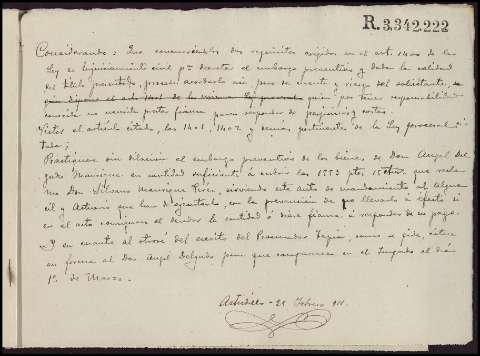 R.3342.222
Considerando: Que concurriendo los requisitos exigidos en el art. 1400 de la
Ley de Enjuiciamiento civil pª decretar el embargo preventivo y dada la calidad
del título presentado, procede acordarlo sin pero de cuenta y riesgo del solicitante,
que dispone el art. 1401 de la misma Ley procesal quien por tener responsabilidad
conocida no necesita prestar fianza para responder de perjuicios y costas.
Vistos el artículo citado, los 1401, 1402 y demás pertinentes de la Ley procesal
tada;
Practíquese sin dilación el embargo preventivo de los bienes de Don Angel Del
gado Manrique en cantidad suficiente á cubrir las 1553 ptas que recla
ma Don Silvano Manrique Pérez, sirviendo este auto de mandamiento al Algua
cil y Actuario que han de ejecutarlo, con la prevención de no llevarlo á efecto si
en el acto consignare el deudor la cantidad ó diere fianza á responder de su pago.
Y en cuanto al otrosí del escrito del Procurador Tapia, como se pide, cítese
en forma al Don Angel Delgado para que comparezca en el Juzgado el día
1º de Marzo.
Astudillo - 21 Febrero 911.